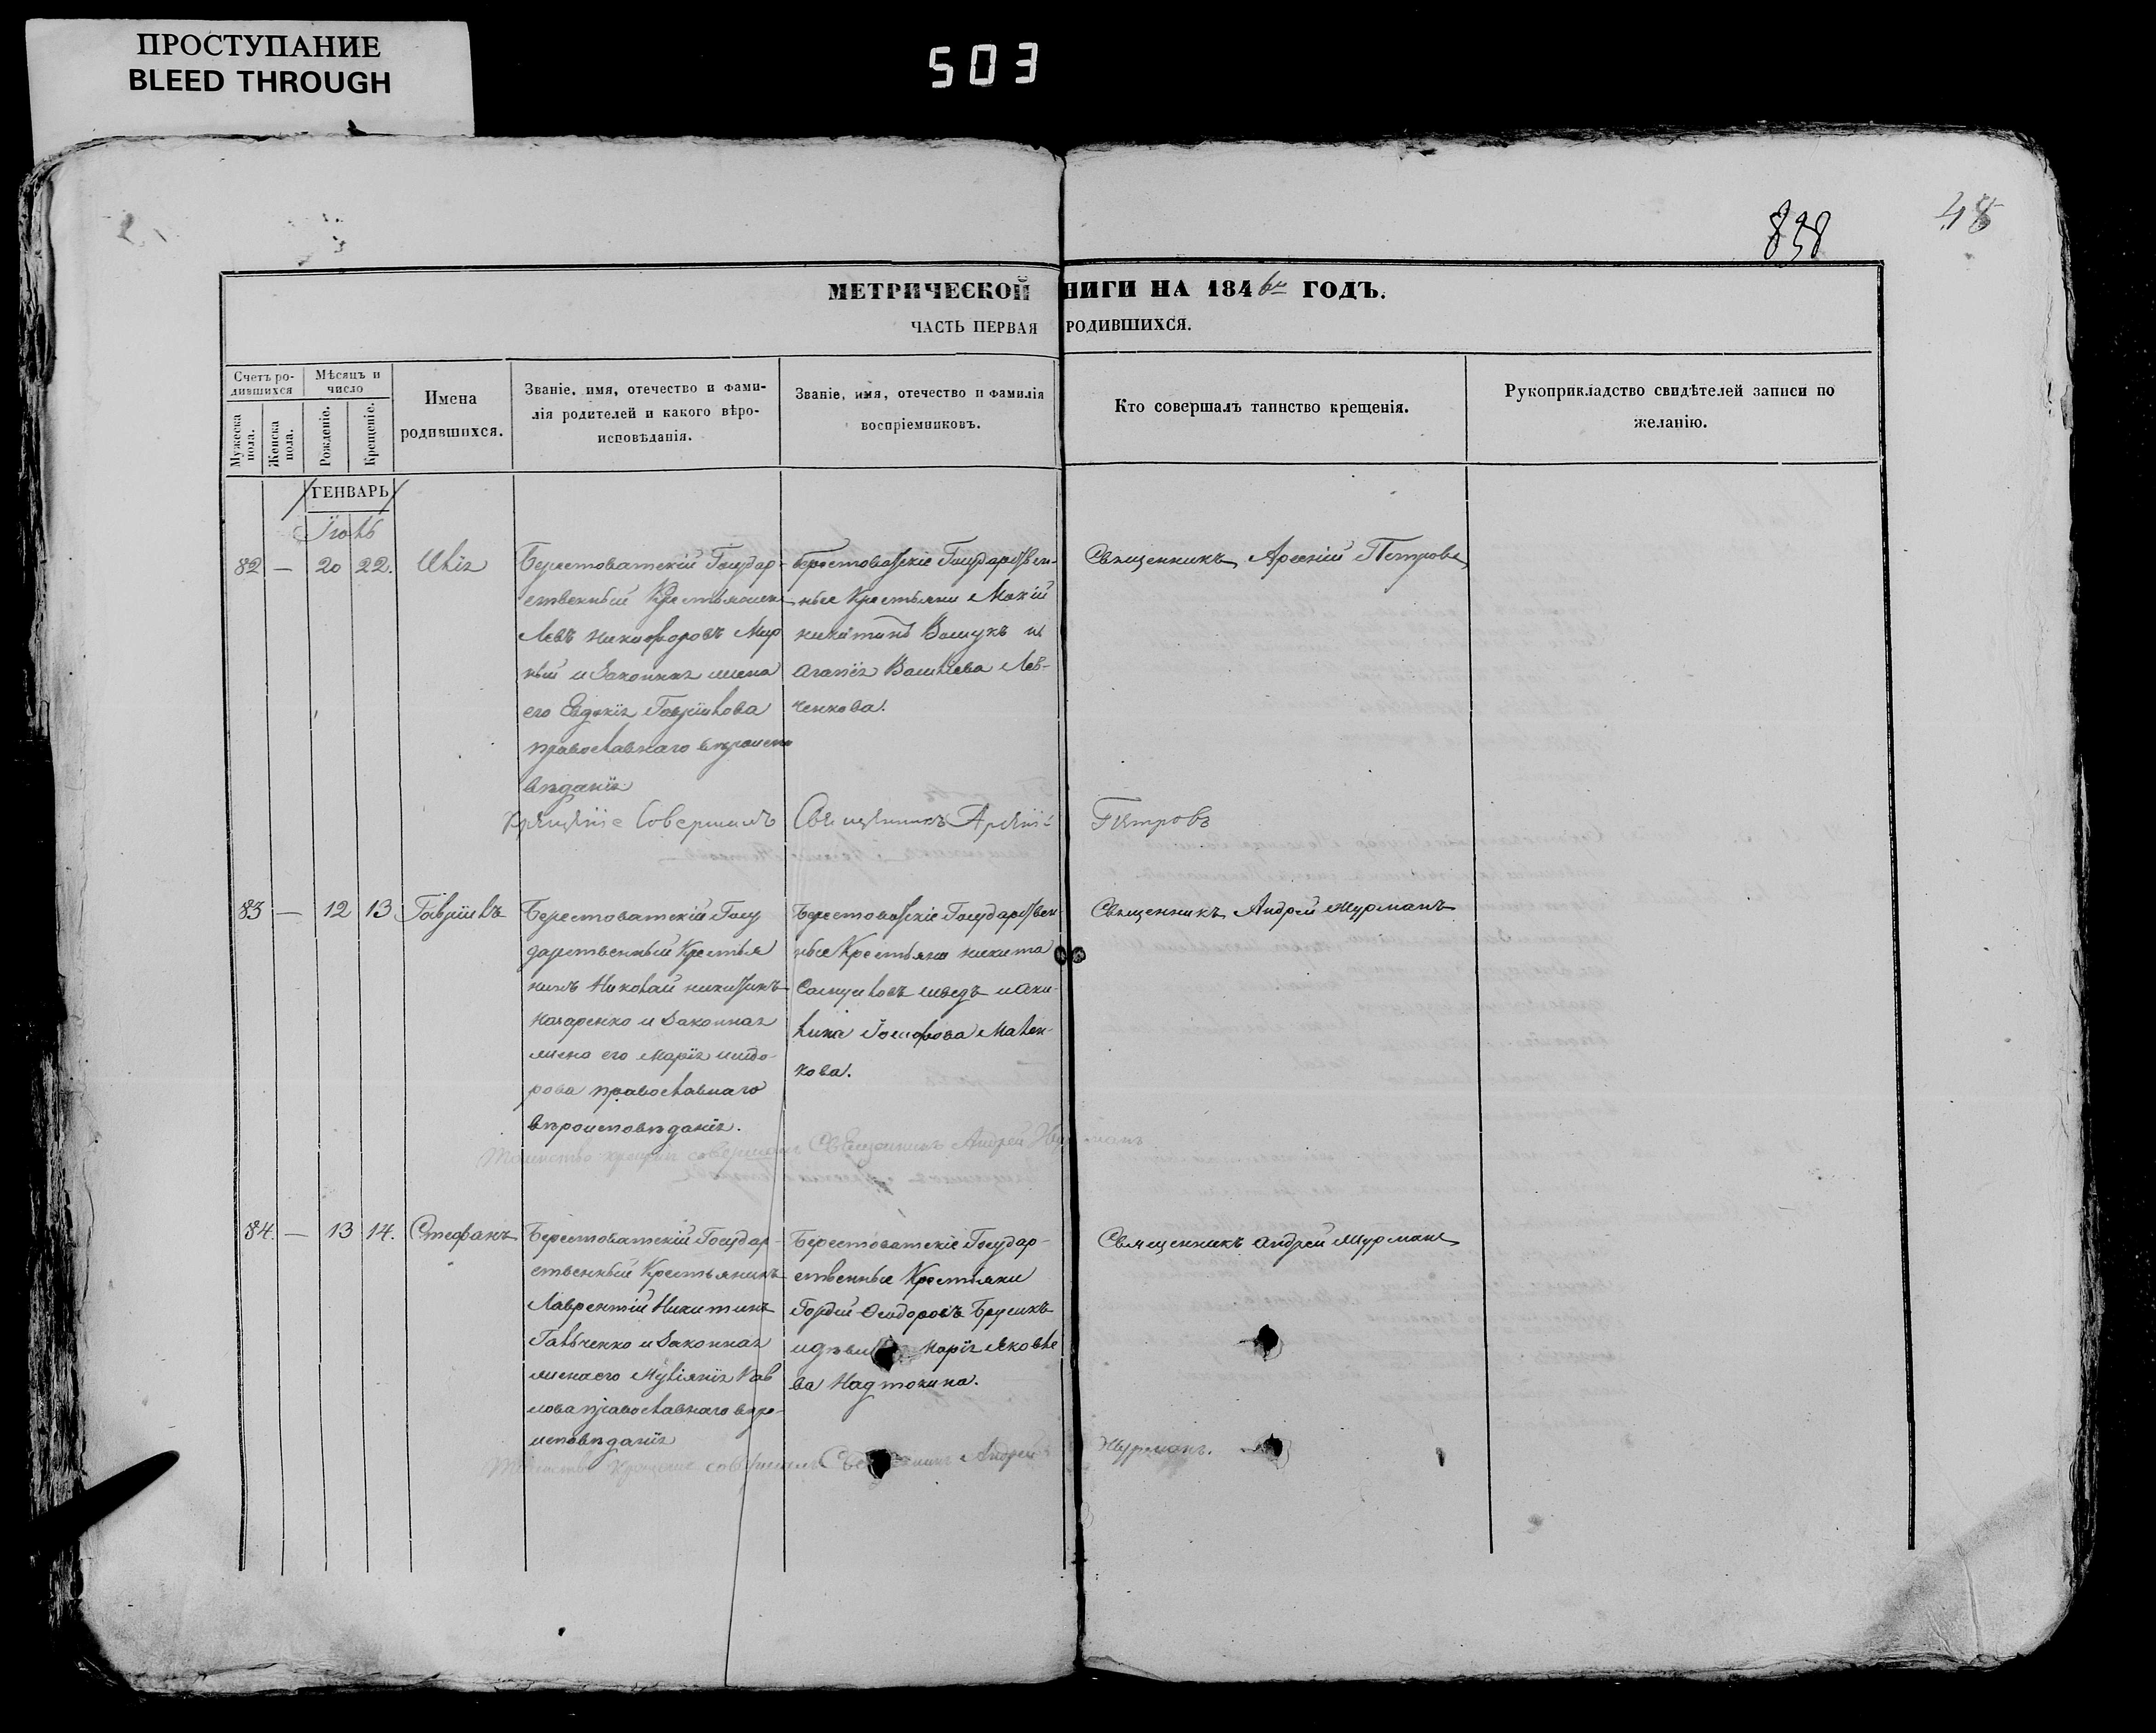 ПРОСТУПАНИЕ
BLEED THROUGH
503
838
48
МЕТРИЧЕСКОЙ НИГИ НА 184 6го ГОДЪ.
ЧАСТЬ ПЕРВАЯ РОДИВШИХСЯ.
Счетъ ро-
дившихся
Мужеска пола.
Женска пола.
Мѣсяцъ и
число
Рожденіе.
Крещеніе.
Имена
родившихся.
Званіе, имя, отечество и фами-
лія родителей и какого вѣро-
исповѣданія.
Званіе, имя, отечество и фамилія
воспріемниковъ.
Кто совершалъ таинство крещенія.
Рукоприкладство свидѣтелей записи по
желанію.
ГЕНВАРЬ
Іюль
82 — 20 22. Илія
Берестоватскій Государ-
ственный Крестьянинъ
Левъ Никифоровъ Мир
ный и Законная жена
его Евдокія Гавріилова
православнаго вѣроиспо
вѣданія
Берестоватскіе Государствен-
ные Крестьяни Мокій
Никитинъ и
Агапія Васильева Лев-
ченкова.
Священникъ Арсеній Петровъ
Крещеніе Совершалъ Священникъ Арсеній Петровъ
83 — 12 13 Гавріилъ
Берестоватскій Госу
дарственный Крестья
нинъ Николай Никитинъ
Назаренко и Законная
жена его Марія Исидо-
рова православнаго
вѣроисповѣданія.
Берестоватскіе Государствен-
ные Крестьяни Никита
Самуиловъ Шведъ и Аки-
лина Іосифова Мален-
кова.
Священникъ Андрей Журманъ
Таинство крещенія совершалъ Священникъ Андрей Журманъ
84. — 13 14. Стефанъ
Берестоватскій Государ-
ственный Крестьянинъ
Лаврентій Никитинъ
Гальченко и Законная
жена его Иуліянія Пав
лова православнаго вѣро-
исповѣданія
Берестоватскіе Государ-
ственные Крестьяни
Гордій Феодоровъ Брусикъ
Марія Яковле
ва Надтокина.
Священникъ Андрей Журманъ
Таинство Крещенія совершалъ Андрей Журманъ.